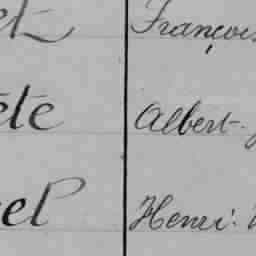 et François
ête Albert-
el Henri.